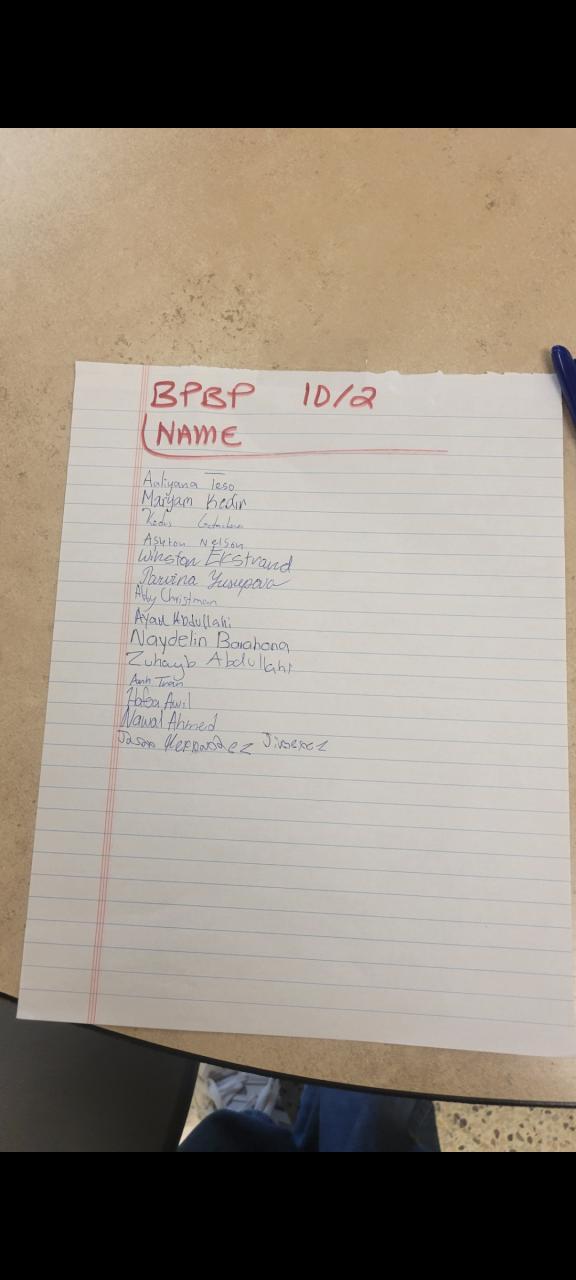 BPBP 10/2
NAME
Aaliyana Teso
Maryam Kedir
Ashton Nelson
Winston Ekstrand
Parvina Yusupova
Abby Christman
Ayan Abdullahi
Naydelin Barahona
Zuhayb Abdullahi
Anh Tran
Hafsa Awil
Nawal Ahmed
Jason Hernandez Jimenez